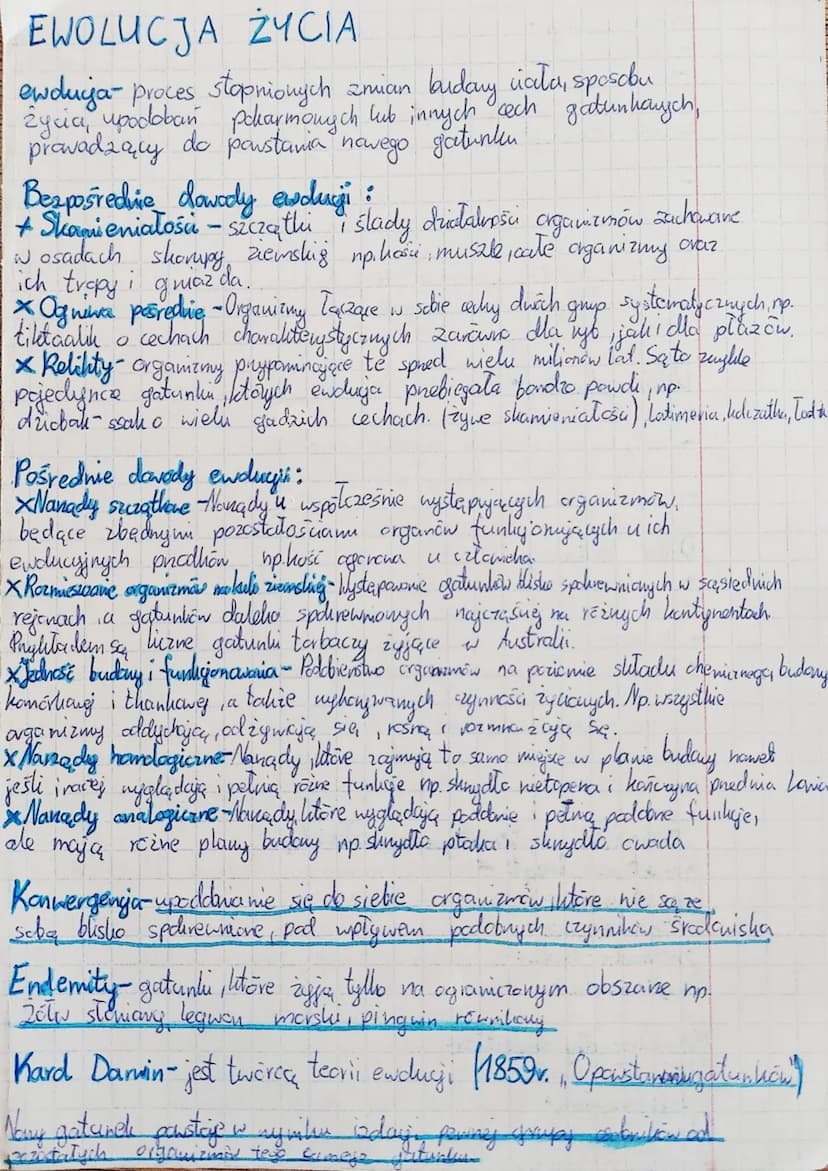 EWOLUCJA ŻYCIA
ewolucja- proces stopniowych zmian budowy ciała, sposobu
życia, upodobań pokarmowych lub innych cech gatunkowych,
prowadzący do powstania nowego gatunku
Bezpośrednie dowody ewolucji:
x Skamieniałości - szczątki i ślady działalności organizmów zachowane
w osadach skorupy ziemskiej np. kości, muszle, całe organizmy oraz
ich tropy i gniazda.
x Ogniwa pośrednie - Organizmy łączące w sobie cechy dwóch grup systematycznych, np.
tiktaalik o cechach charakterystycznych zarówno dla ryb, jak i dla płazów.
x Relikty- organizmy przypominające te sprzed wielu milionów lat. Są to zwykle
pojedyncze gatunki, których ewolucja przebiegała bardzo powoli, np.
dziobak- ssak o wielu gadzich cechach. (żywe skamieniałości), Latimeria, kolczatka,
Pośrednie dowody ewolucji:
x Narządy szczątkowe - Narządy u współcześnie występujących organizmów,
będące zbędnymi pozostałościami organów funkcjonujących u ich
ewolucyjnych przodków np. kość ogonowa u człowieka.
x Rozmieszczenie organizmów na kuli ziemskiej- Występowanie gatunków blisko spokrewnionych w sąsiednich
rejonach, a gatunków daleko spokrewnionych najczęściej na różnych kontynentach.
Przykładem są liczne gatunki torbaczy żyjące w Australii.
x Jedność budowy i funkcjonowania- Podobieństwo organizmów na poziomie składu chemicznego, budowy
komórkowej i tkankowej, a także wykonywanych czynności życiowych. Np. wszystkie
organizmy oddychają, odżywiają się, rosną i rozmnażają się.
x Narządy homologiczne- Narządy, które zajmują to samo miejsce w planie budowy nawet
jeśli inaczej wyglądają i pełnią różne funkcje np. skrzydło nietoperza i kończyna przednia konia
x Narządy analogiczne - Narządy, które wyglądają podobnie i pełnią podobne funkcje,
ale mają różne plany budowy np. skrzydło ptaka i skrzydło owada
Konwergencja- upodobnianie się do siebie organizmów, które nie są ze
sobą blisko spokrewnione, pod wpływem podobnych czynników środowiska
Endemity- gatunki, które żyją tylko na ograniczonym obszarze np.
żółw słoniowy, legwan morski, pingwin równikowy
Karol Darwin- jest twórcą teorii ewolucji (1859r. „O powstawaniu gatunków”)
Nowy gatunek powstaje w wyniku izolacji pewnej grupy osobników od
pozostałych organizmów tego samego gatunku.